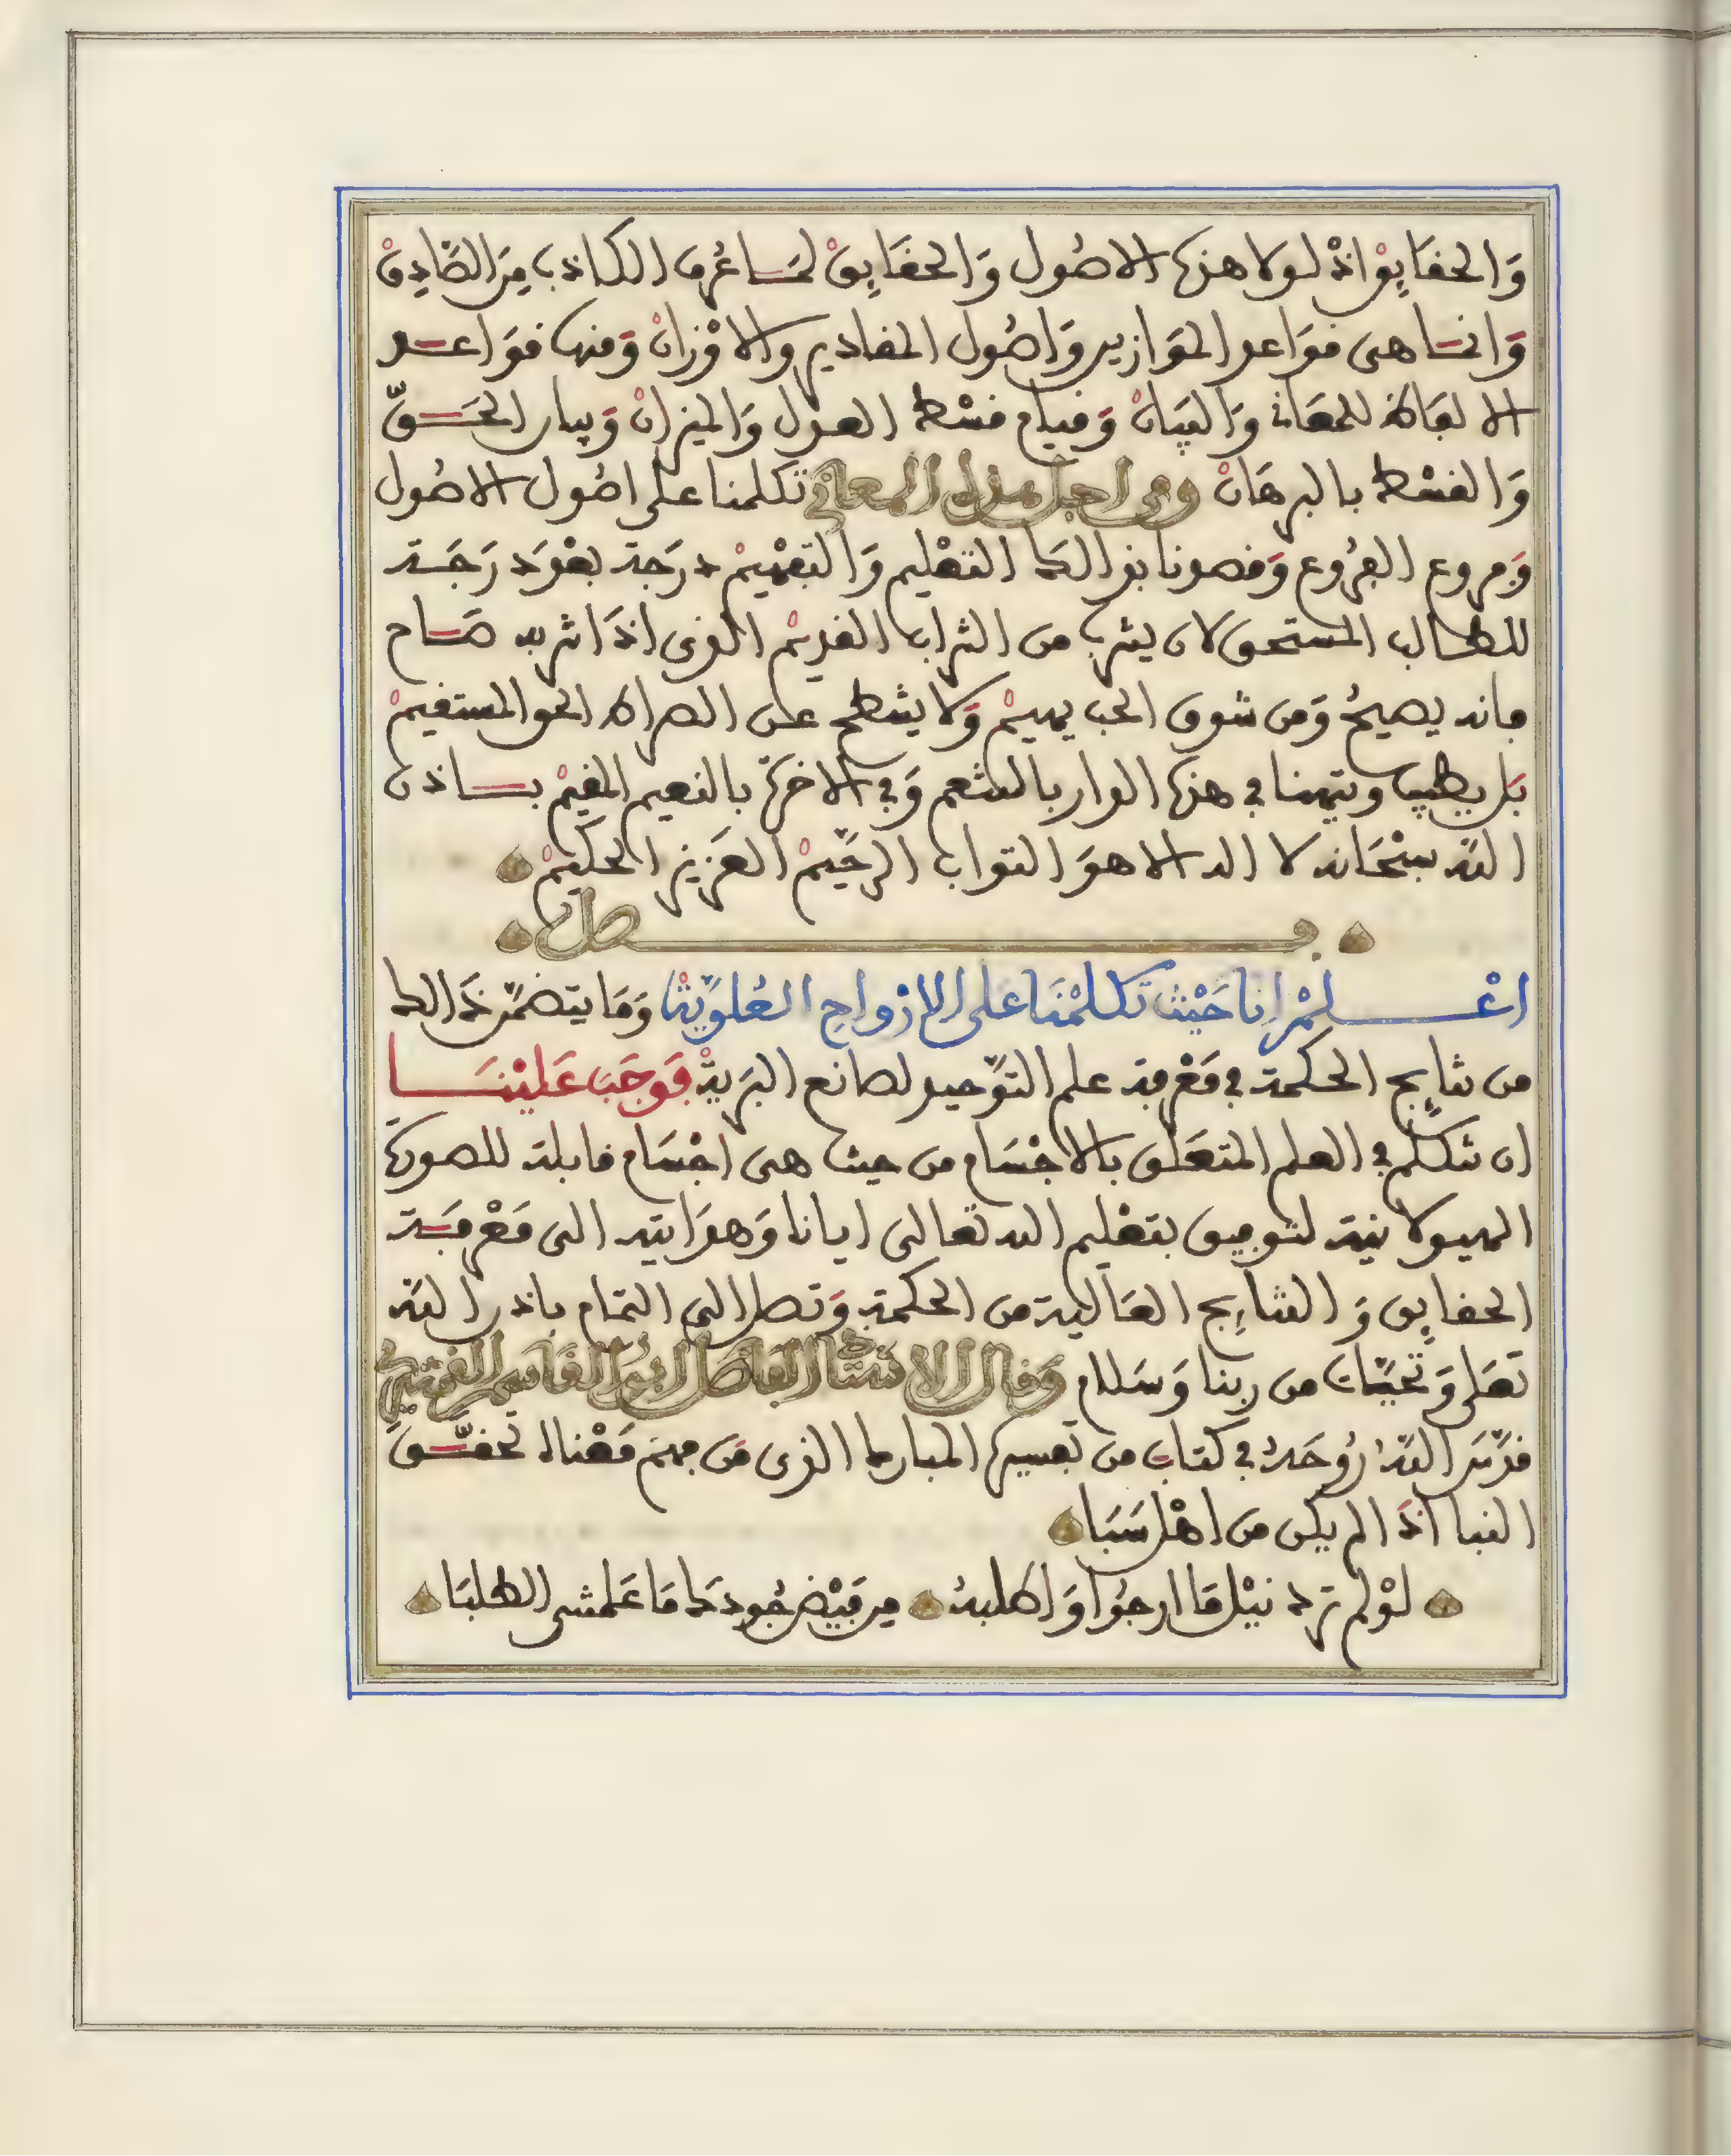 وَالحقَايِقْ اذْ لولا هذه الاصُول وَالحقَايِقْ لمَا عُرف الكاذب مِنَ الصَّادِقْ
وَانمَا هى قوَاعد الموَازين وَاصُول المقادير والاوْزانْ وَمنها قوَاعد
الالفاظ للمعَانى وَالبيَانْ وَقيام قسْط العدل وَالميزانْ وَبيان الحَقّ
وَالقسْط بالبرهَانْ ومن اجل هذه المعانى تكلمنا على اصُول الاصُول
وَفروع الفرُوع وَقصدنا بذالك التعْليم وَالتفهْيمْ درَجة بعْدَ درَجَة
للطالب المستحق لان يشرب من الشراب القديمْ الذى اذا شربه صَاح
فانه يصيحُ وَمن شوق الحب يهيمْ وَلا يشطح على الصراط الحق المستقيمْ
بَل يطيب ويتهنا في هذه الدار بالتنعم وَفي الاخرة بالنعيم المقيمْ باذن
اللّه سبْحَانه لا اله الا هوَ التواب الرحَيمْ العَزيز الحكيمْ
فصل
اعْلمْ انا حَيْث تكلمْنَا على الارْواحِ العُلويَّةْ وَمَا يتضمَّن ذَالك
من نتايج الحكمة في مَعْرفة علم التوَّحيد لصانع البرَيةْ فوَجَبَ عَليْنَا
ان نتكلم في العلم المتعَلق بالاجْسَام من حيث هى اجْسَام قابلة للصورة
الهيولانية لتوفيق بتعْليم الله تعالى ايانا وَهدَايته الى مَعْرفَة
الحقايق وَالنتايج العَالية من الحكمة وَتصل الى التمام باذن اللّه
تعَلى وَتحيَّات من ربنا وَسَلام وَقال الاسْتَاذ الفَاضل ابُو القَاسم القشيرى
قدَّسَ اللّهُ رُوحَهُ في كتاب من تفسيره المبارك الذى مَن فهم مَعْناهُ تحقَّق
النبا اذَا لم يكن من اهْل سَبَا
لوْ لم ترد نيْل مَا ارجوُا وَاطلبهُ من فيْض جُودكَ مَا عَلمتنى الطلبَا